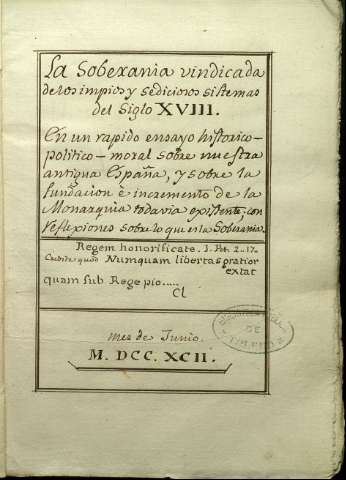 La Soberanìa vindicada
de los impios y sediciosos sistemas
del Siglo XVIII.
En un rapido ensayo historico-
politico-moral sobre nuestra
antigua España, y sobre la
fundacion è incremento de la
Monarquia todavia existente; con
reflexiones sobre lo que es la Soberania.
Regem honorificate. I. Pet. 2..17.
Numquam libertas gratior
extat
quam sub Rege pio.....
Cl
Mes de Junio.
M. DCC. XCII.